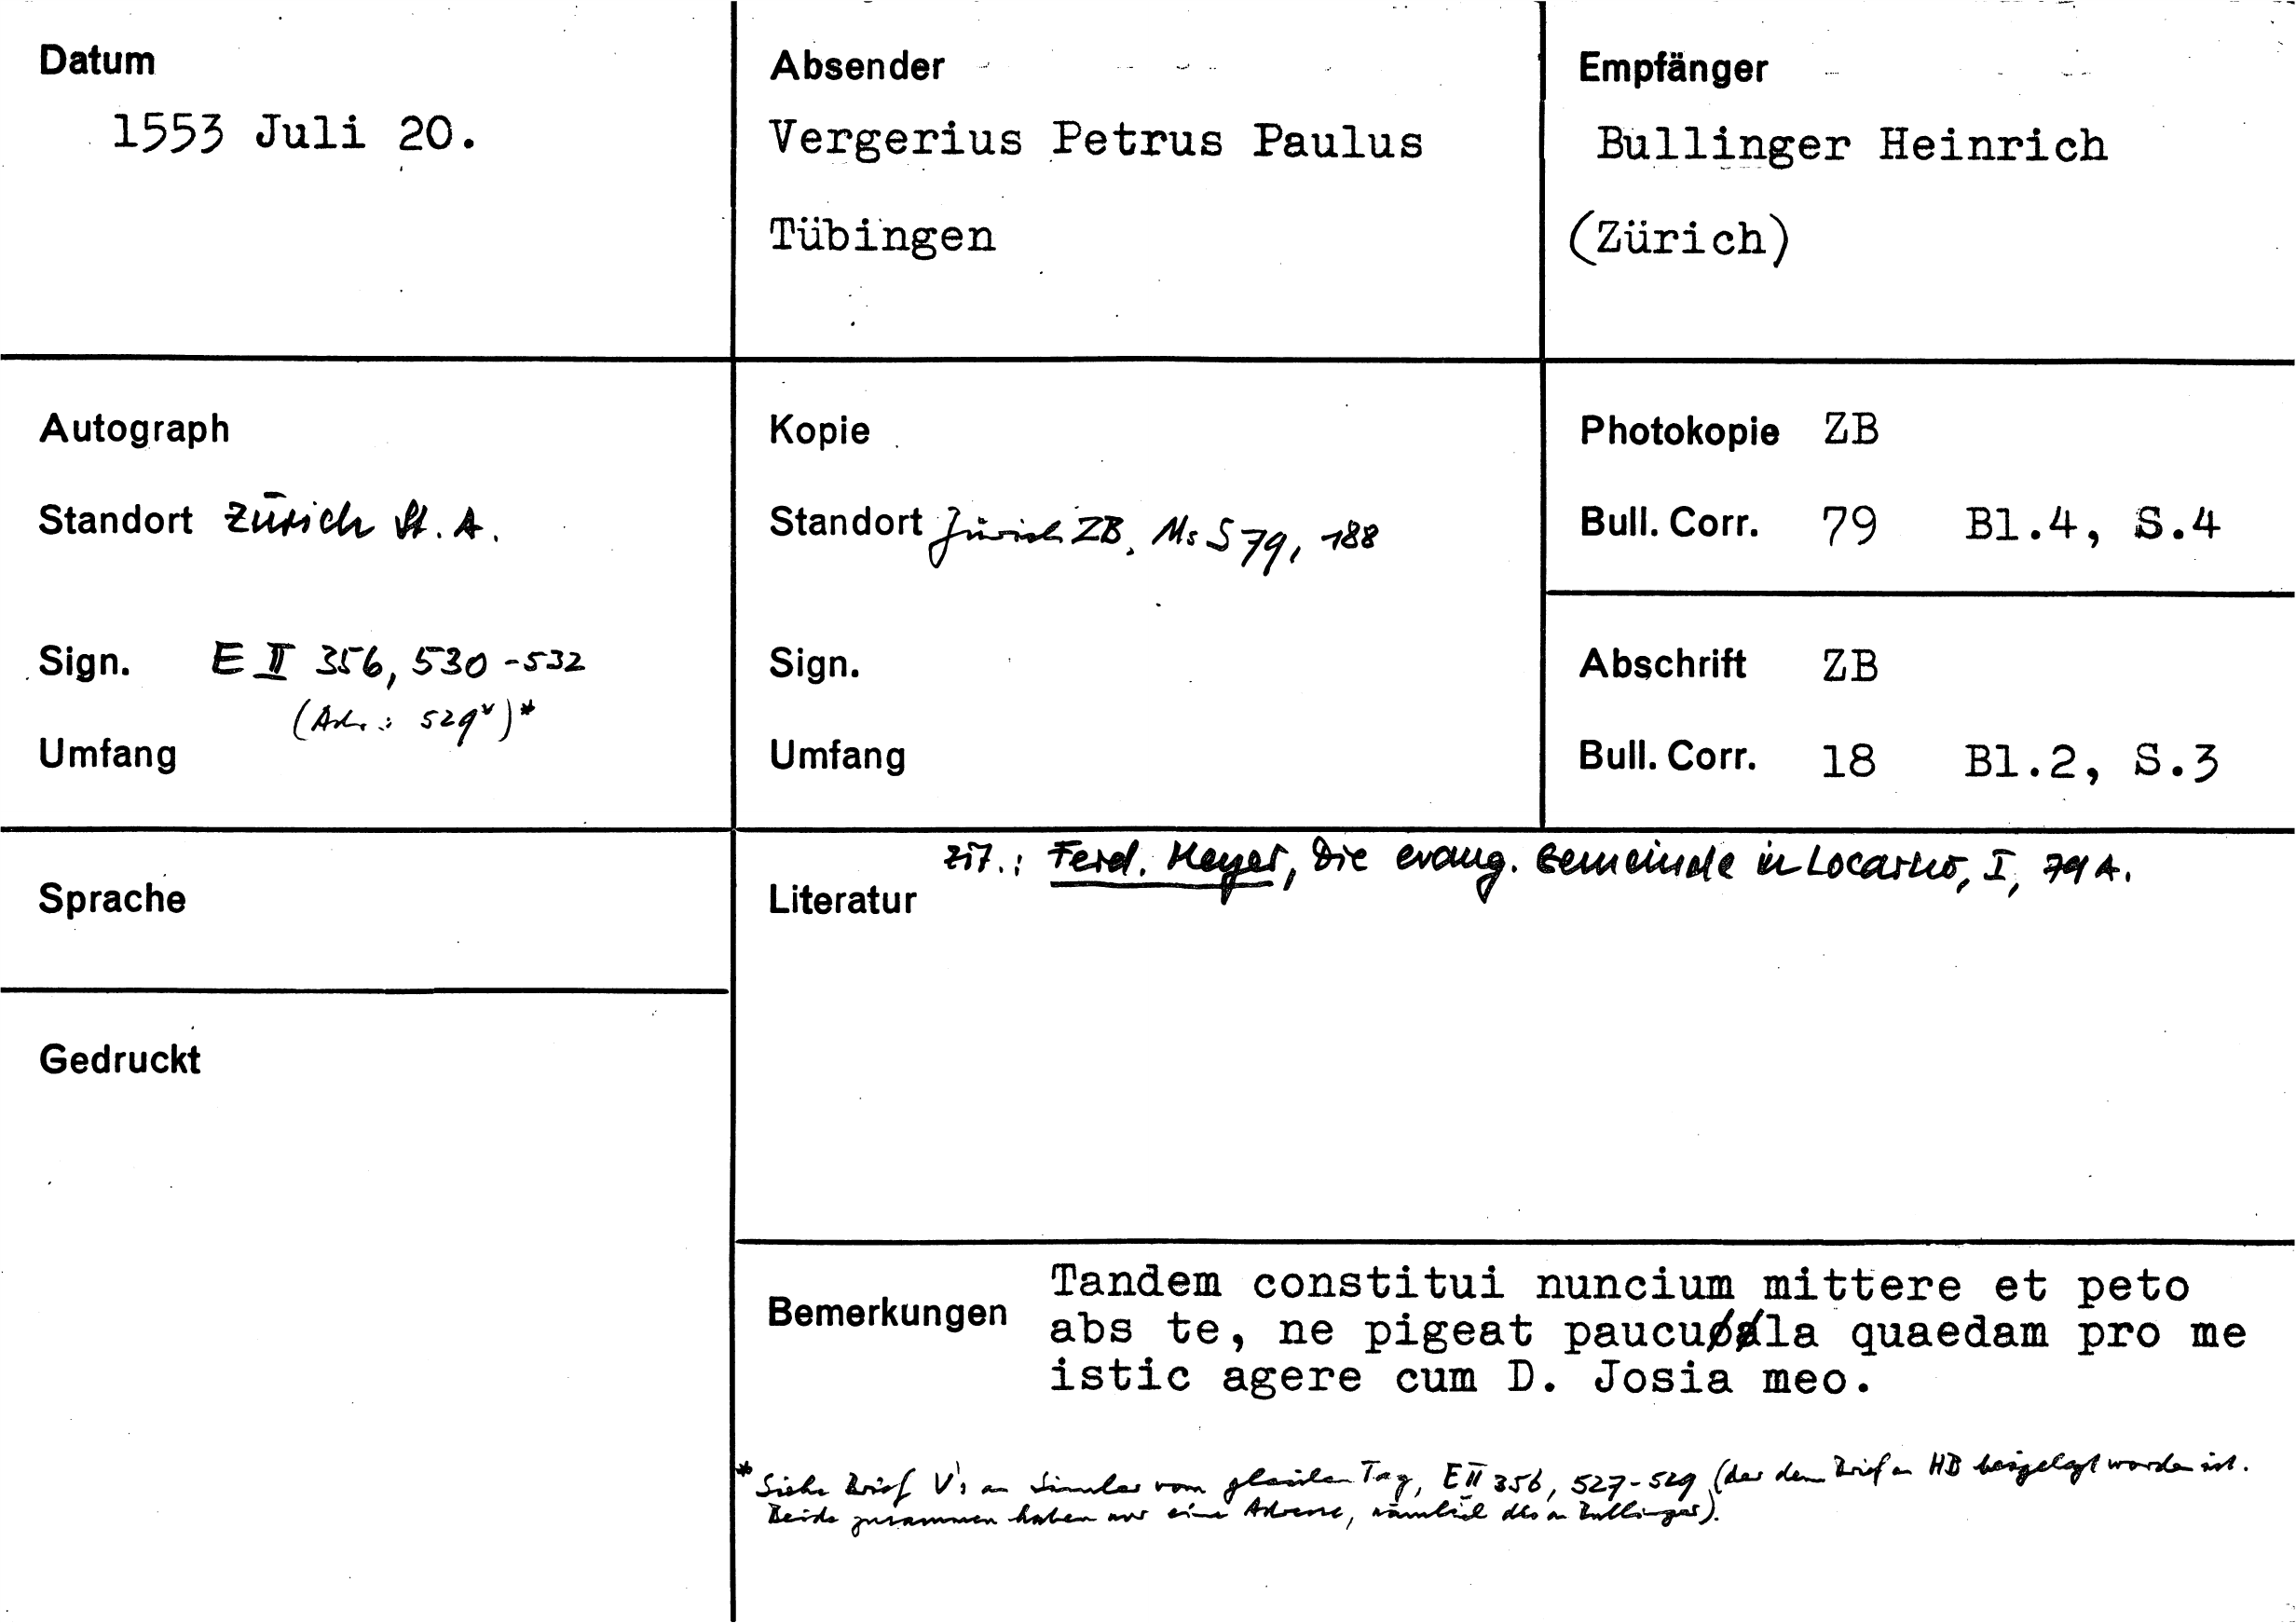 Datum
1553 Juli 20.
Absender
Vergerius Petrus Paulus
Tübingen
Empfänger
Bullinger Heinrich
(Zürich)
Autograph
Standort Zürich St. A.
Sign. E II 356, 530-532
(Adr.: 529v)*
Umfang
Kopie
Standort Zürich ZB, Ms S 79, 188
Sign.
Umfang
Photokopie ZB
Bull. Corr. 79 Bl.4, S.4
Abschrift ZB
Bull. Corr. 18 Bl.2, S.3
Sprache
Gedruckt
zit.: Ferd. Meyer, Die evang. Gemeinde in Locarno, I, 79 A.
Literatur
Bemerkungen
Tandem constitui nuncium mittere et peto
abs te, ne pigeat paucula quaedam pro me
istic agere cum D. Josia meo.
* Siehe Brief V's an Simler vom gleichen Tag, E II 356, 527-529 (der dem Brief an HB beigelegt worden ist.
Beide zusammen haben nur eine Adresse, nämlich die an Bullinger).